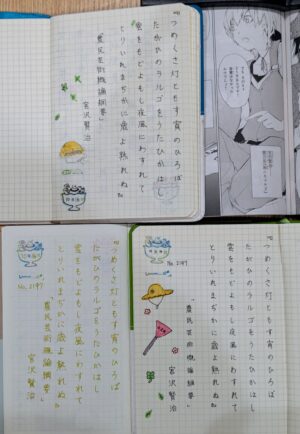 『つめくさ灯ともす宵のひろば
たがひのラルゴをうたひかはし
雲をもどよもし夜風にわすれて
とりいれまぢかに歳よ熟れぬ』
『農民芸術概論綱要』
宮沢賢治
No. 2197
『つめくさ灯ともす宵のひろば
たがひのラルゴをうたひかはし
雲をもどよもし夜風にわすれて
とりいれまぢかに歳よ熟れぬ』
『農民芸術概論綱要』
宮沢賢治
No. 2197
『つめくさ灯ともす宵のひろば
たがひのラルゴをうたひかはし
雲をもどよもし夜風にわすれて
とりいれまぢかに歳よ熟れぬ』
『農民芸術概論綱要』
宮沢賢治